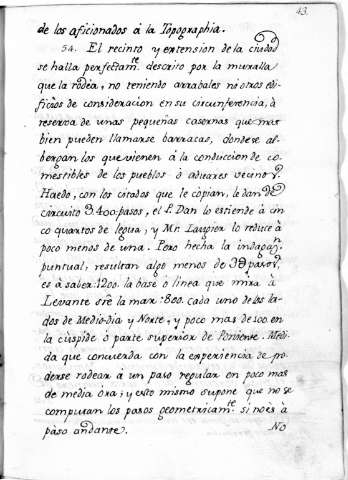 43.
de los aficionados à la Topographia.
54. El recinto y extension de la ciudad
se halla perfectam.te descrito por la muralla
que la rodéa, no teniendo arrabales no otros edi-
ficios de consideracion en su circunferencia, à
reserva de unas pequeñas casernas que mas
bien pueden llamarse barracas, donde se al-
bergan los que vienen à la conduccion de co-
mestibles de los pueblos ò aduares vecinos.
Haedo, con los citados que le copian, le dan de
circuito 3400 pasos, el P. Dan lo estiende à cin
co quartos de legua; y Mr. Laugier lo reduce à
poco menos de una. Pero hecha la indagan.
puntual, resultan algo menos de 3 pasos,
es à saber: 1200. la base ò linea que mira à
Levante sre la mar: 800. cada uno de los la-
dos de Medio-dia y Norte, y poco mas de 100 en
la cùspide ò parte superior de Poniente. Medi-
da que concuerda con la experiencia de po-
derse rodear à un paso regular en poco mas
de media òra; y esto mismo supone que no se
computan los pasos geometricam.te si no es à
pàso andante.
No